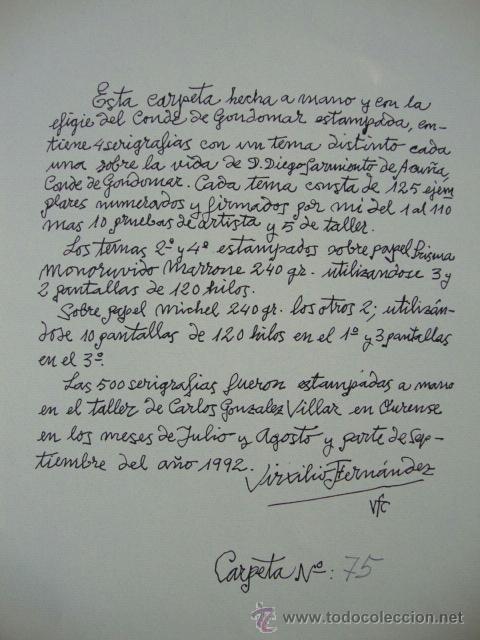 Esta carpeta hecha a mano y con la
efigie del Conde de Gondomar estampada, con-
tiene 4 serigrafias con un tema distinto cada
una sobre la vida de D. Diego Sarmiento de Acuña,
Conde de Gondomar. Cada tema consta de 125 ejem
plares numerados y firmados por mi del 1 al 110
mas 10 pruebas de artista y 5 de taller.
Los temas 2º y 4º estampados sobre papel Prisma
Monoruvido Marrone 240 gr. utilizandose 3 y
2 pantallas de 120 hilos.
Sobre papel Michel 240 gr. los otros 2; utilizán-
dose 10 pantallas de 120 hilos en el 1º y 3 pantallas
en el 3º.
Las 500 serigrafias fueron estampadas a mano
en el taller de Carlos Gonzalez Villar en Ourense
en los meses de Julio y Agosto y parte de Sep-
tiembre del año 1992.
Virxilio Fernández
vfc
Carpeta Nº: 75
www.todocoleccion.net